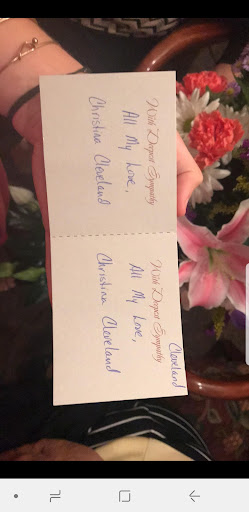 With Deepest Sympathy
All My Love,
Christina Cleveland
Cleveland
With Deepest Sympathy
All My Love,
Christina Cleveland